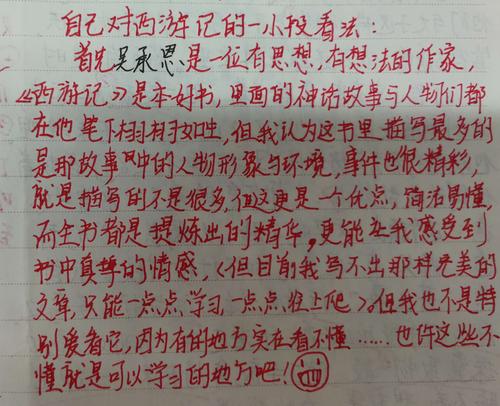 自己对西游记的一小段看法:
首先吴承恩是一位有思想,有想法的作家,
《西游记》是本好书,里面的神话故事与人物们都
在他笔下栩栩如生,但我认为这书里描写最多的
是那故事中的人物形象与环境,事件也很精彩,
就是描写的不是很多,但这更是一个优点,简洁易懂,
而全书都是提炼出的精华,更能让我感受到
书中真挚的情感,(但目前我写不出那样完美的
文章,只能一点点学习,一点点往上爬)。但我也不是特
别爱看它,因为有的地方实在看不懂……也许这些不
懂就是可以学习的地方吧!